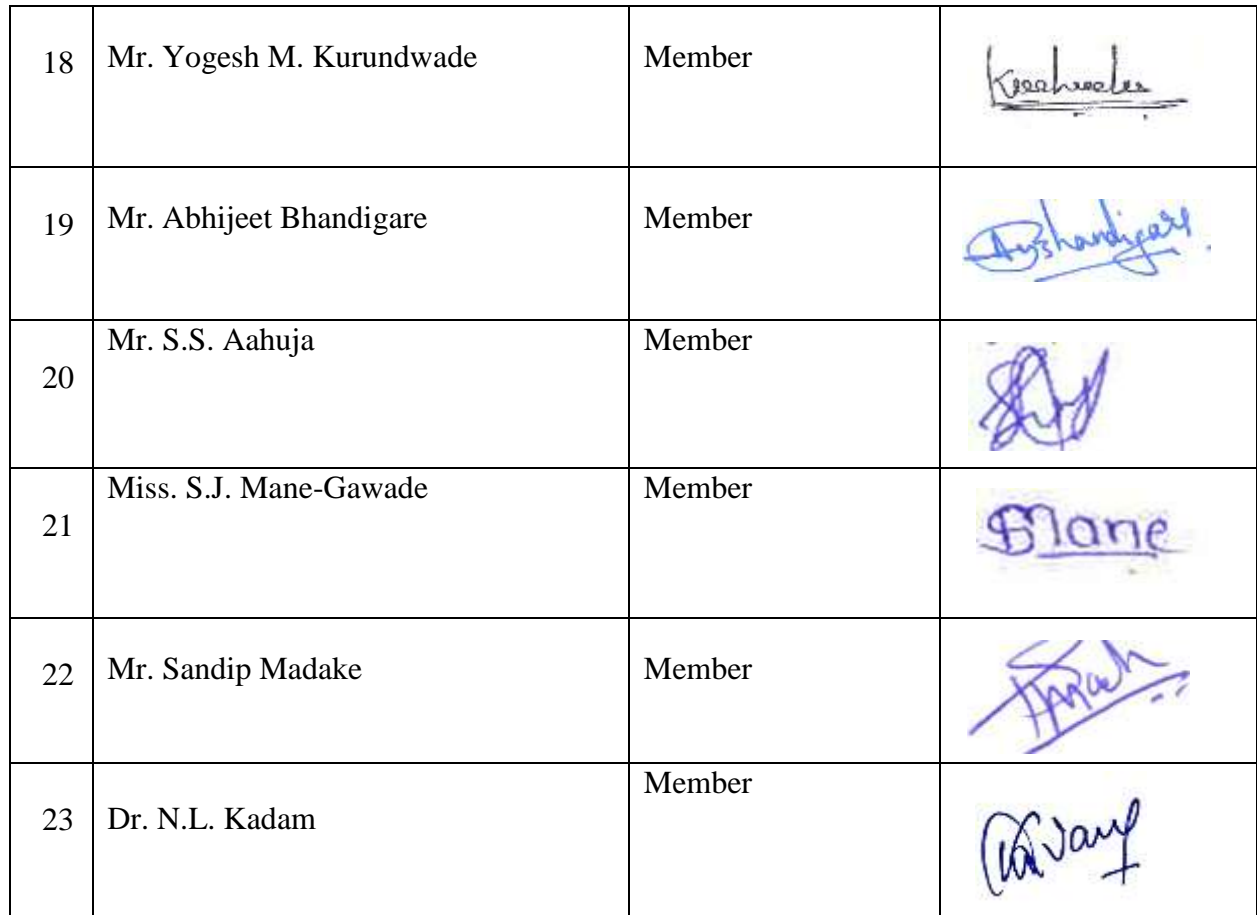 18 Mr. Yogesh M. Kurundwade Member
19 Mr. Abhijeet Bhandigare Member
20 Mr. S.S. Aahuja Member
21 Miss. S.J. Mane-Gawade Member SMane
22 Mr. Sandip Madake Member
23 Dr. N.L. Kadam Member